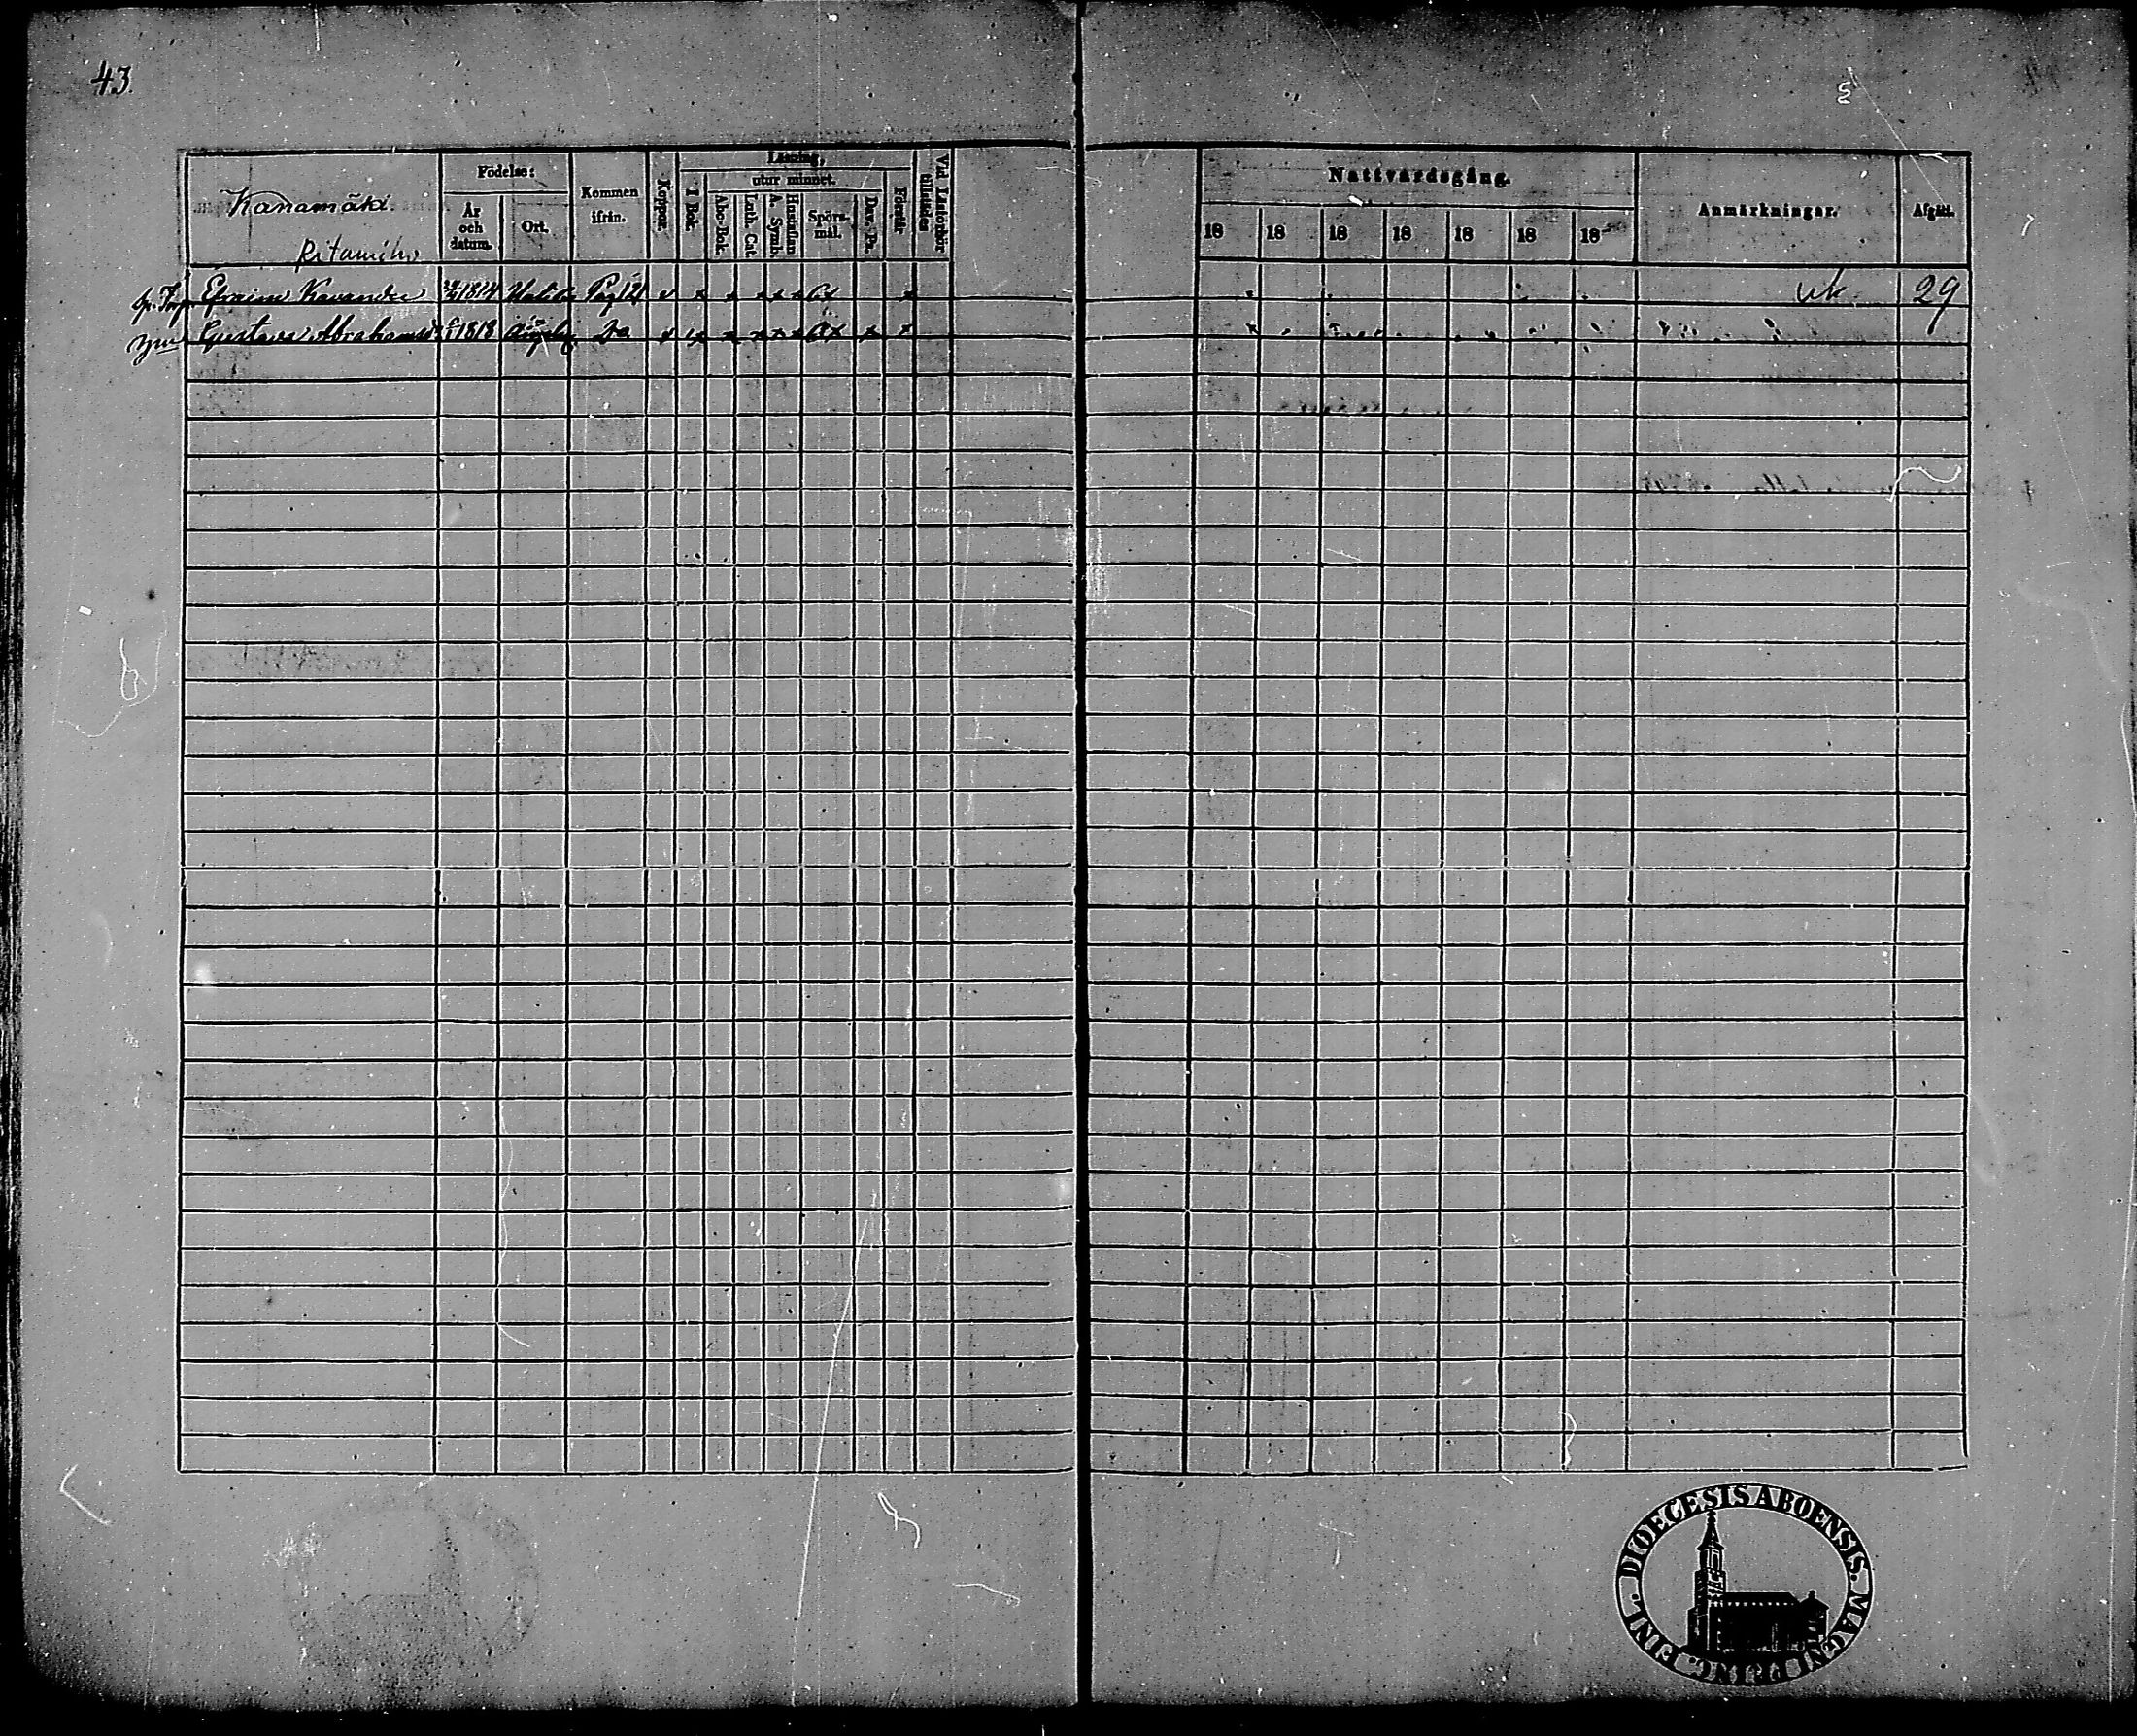 43.
Kanamäki.
Ritamiho
Födelse:
År och datum.
Ort.
Kommen ifrån.
Koppor.
Läsning,
I Bok.
utur minnet.
Abc-Bok.
Luth. Cat.
Hustaflan A. Symb.
Spörs-mål.
Dav. Ps.
Förstår
Vid Läsförhör tillstädes
Nattvardsgång.
18 18 18 18 18 18 18
Anmärkningar.
Afgått.
Efraim Kavander 1814 Pag 121 29
Gustava Abrahamsd. 1818
DIOECESIS ABOENSIS. MAGNI PRINC. FINL.